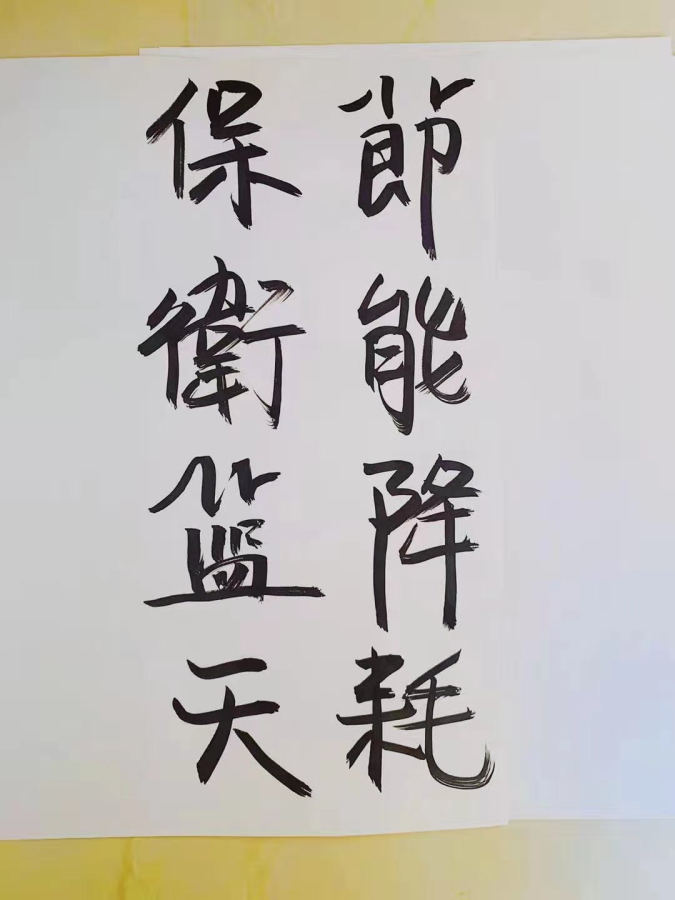 節能降耗
保衛篮天